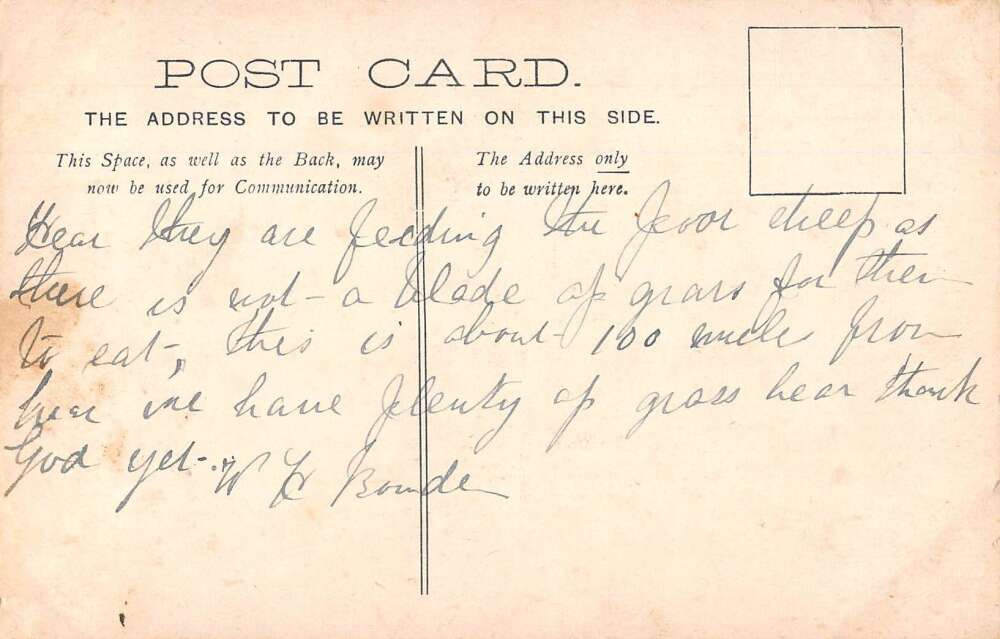 POST CARD.
THE ADDRESS TO BE WRITTEN ON THIS SIDE.
This Space, as well as the Back, may
now be used for Communication.
The Address only
to be written here.
Hear they are feeding the poor sheep as
there is not a blade of grass for them
to eat, this is about 100 miles from
hear we have plenty of grass hear thank
God yet. W H